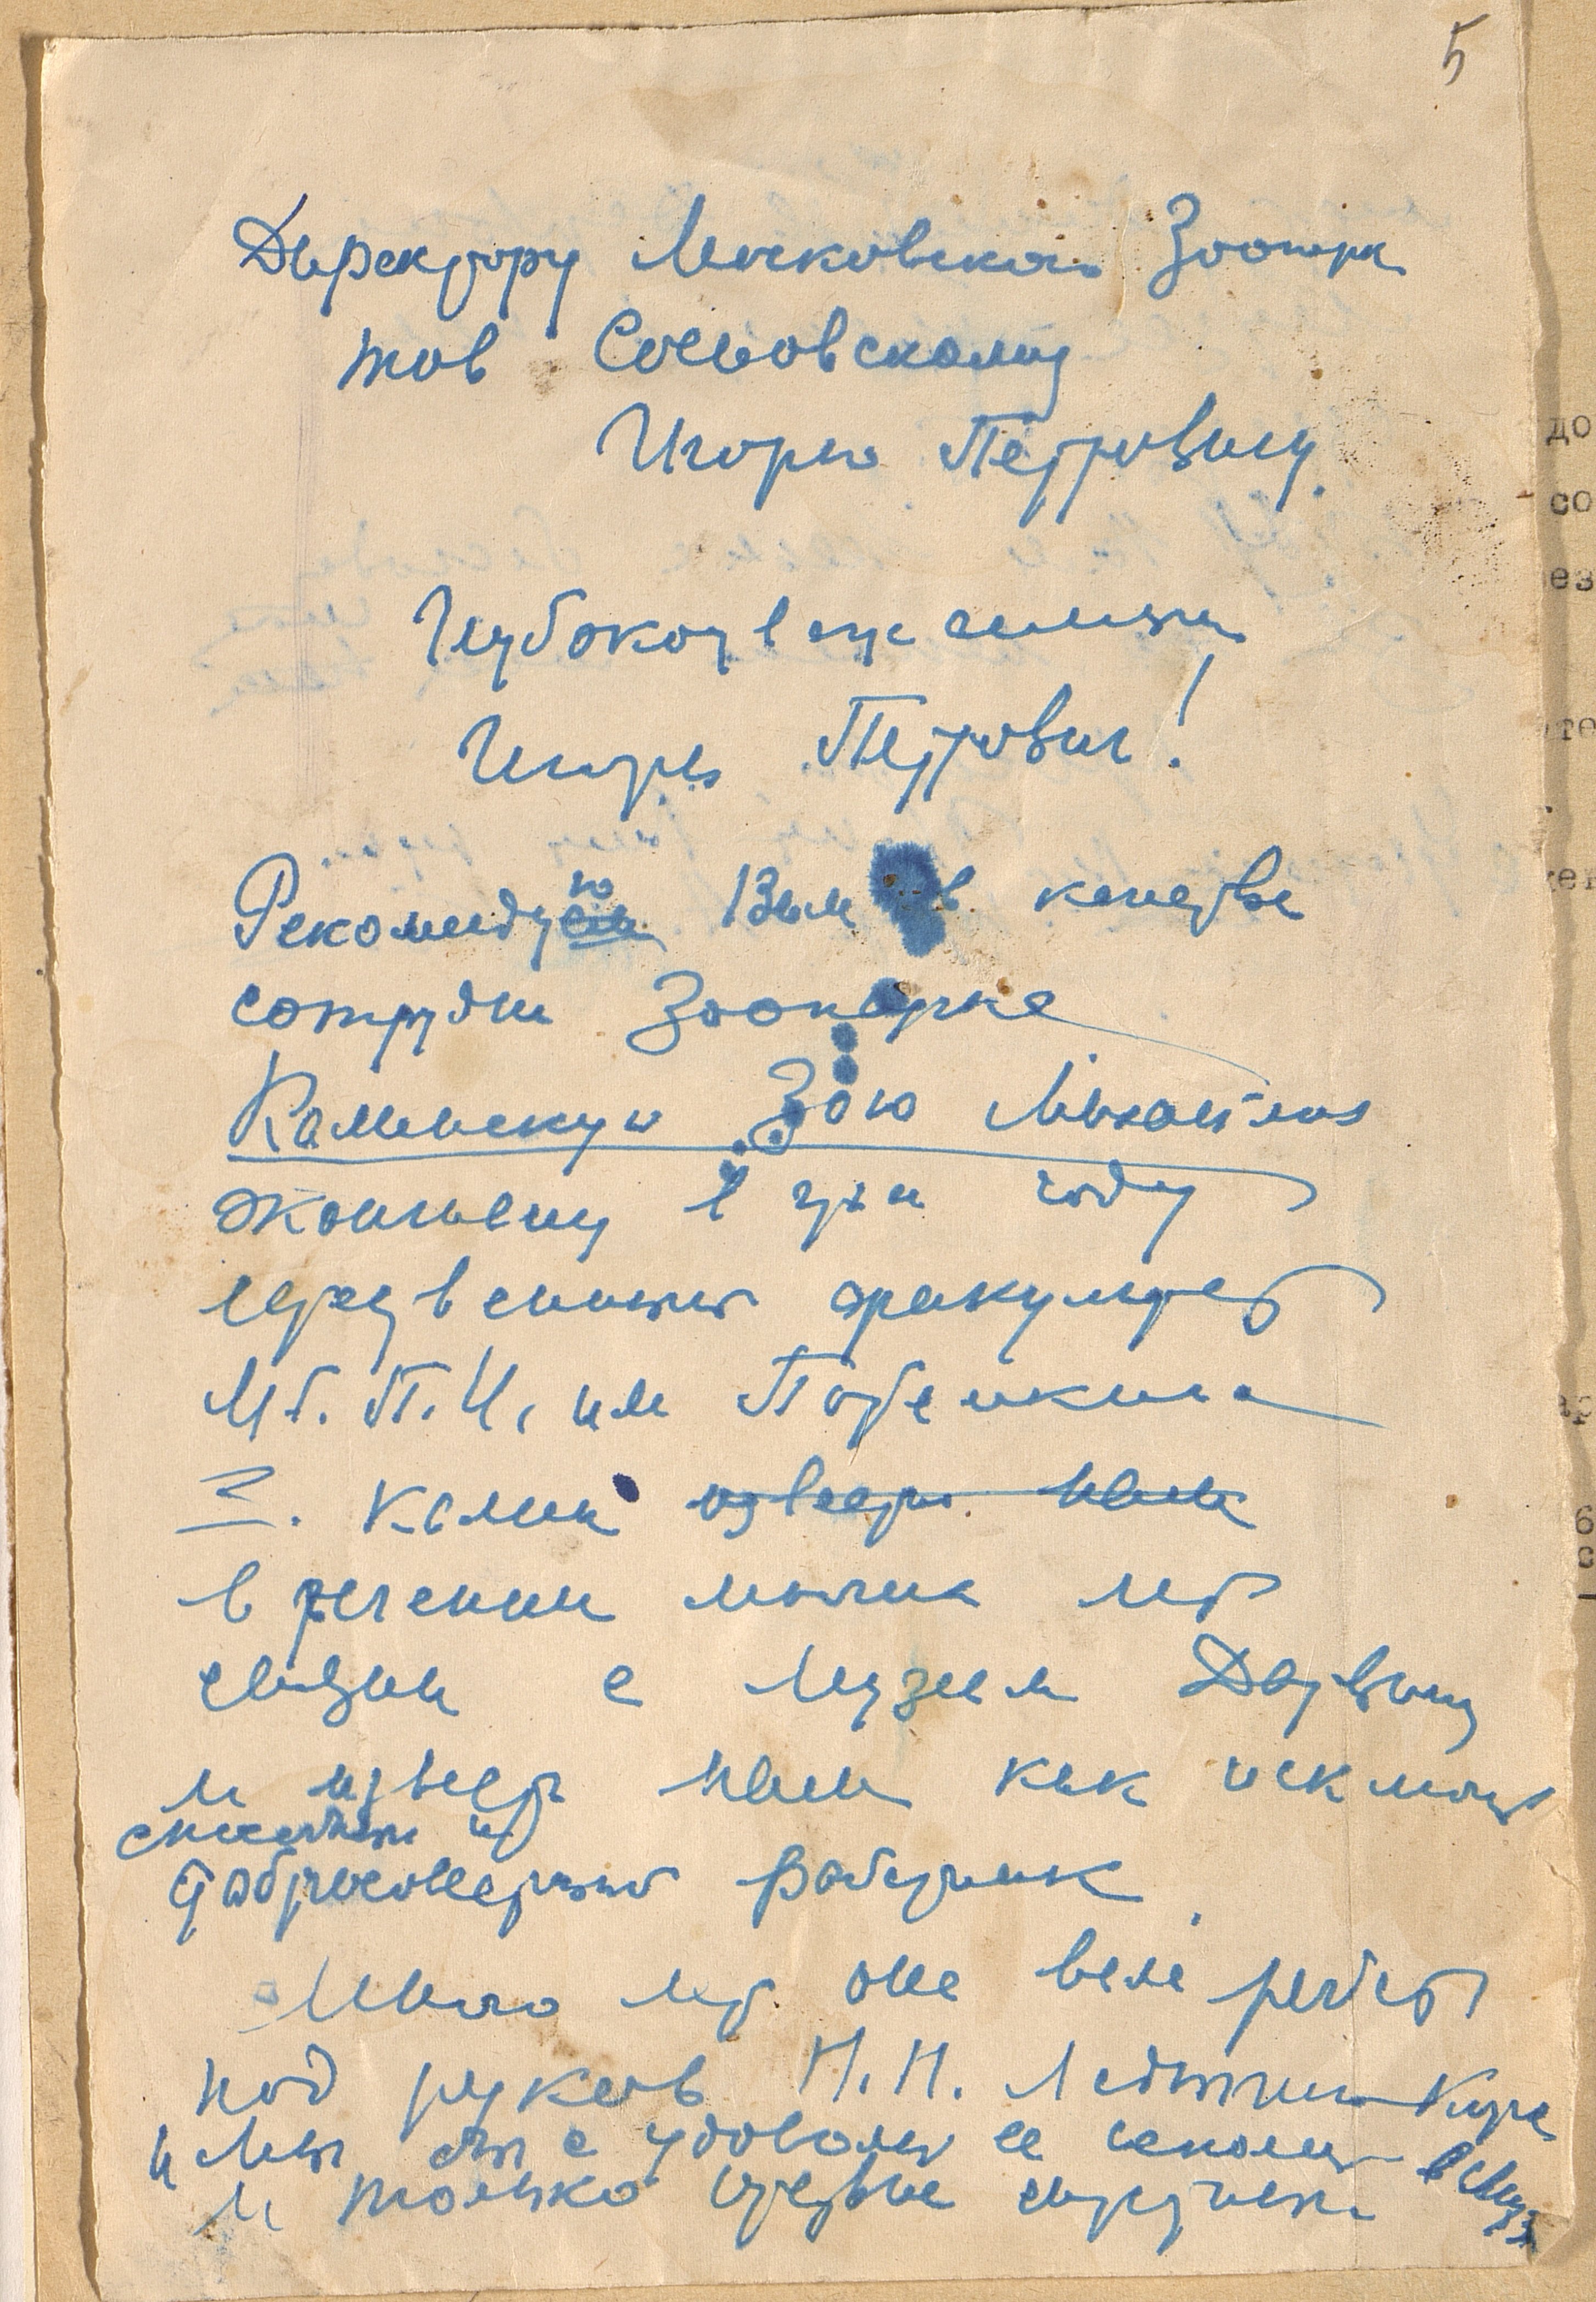 5
Директору Московского Зоопарк
тов Сосновскому
Игорю Петровичу
Глубокоуважаемый
Игорь Петрович!
Рекомендую Вам в качестве
сотрудн Зоопарка
Каменскую Зою Михайловн
окончившую в этом году
естественный факультет
М.Г.П.И. им Потемкина
З. Камен известн нам
в течении многих лет
связан с Музеем Дарвину
и известн нам как исключ
способный и
добросовестный работник
Много лет она вела работ
под руков Н.Н. Ладыгиной Котс
и Мы бы с удовольст ее
и только отсутствие
до
со
ез